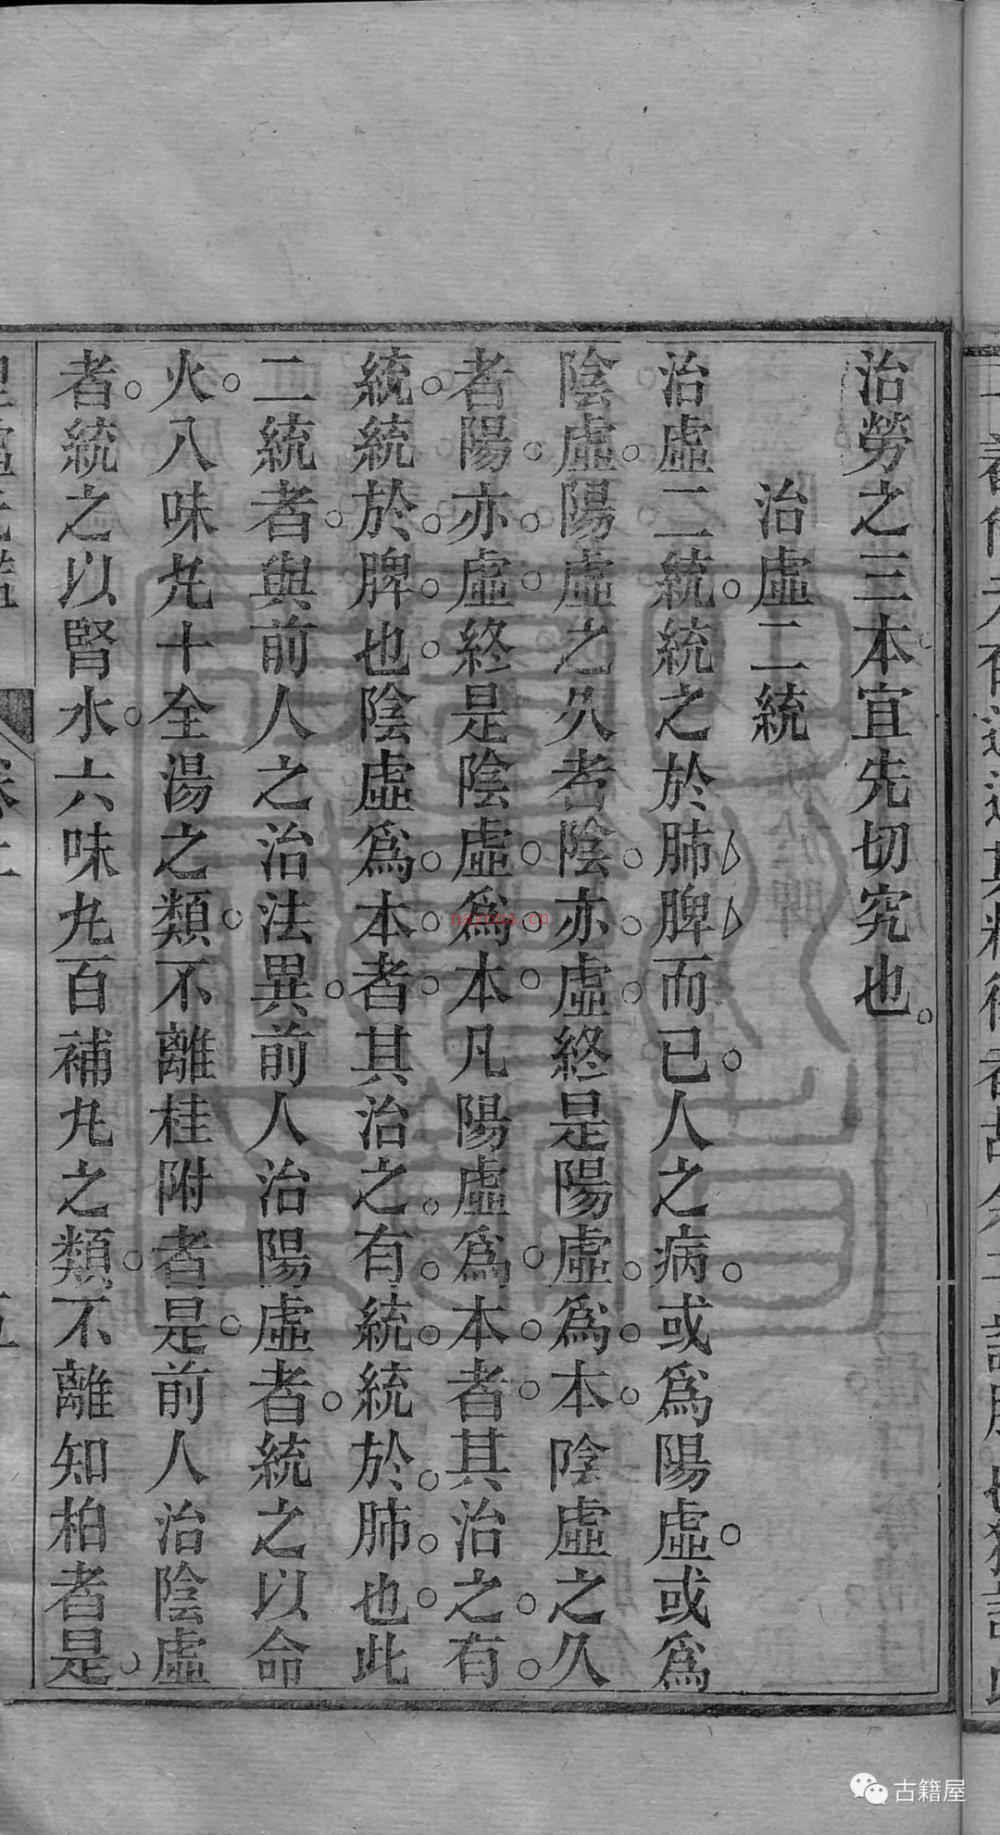 治勞之三本宜先切究也
治虛二統
治虛二統統之於肺脾而已人之病或爲陽虛或爲
陰虛陽虛之久者陰亦虛終是陽虛爲本陰虛之久
者陽亦虛終是陰虛爲本凡陽虛爲本者其治之有
統統於脾也陰虛爲本者其治之有統統於肺也此
二統者與前人之治法異前人治陽虛者統之以命
火八味丸十全湯之類不離桂附者是前人治陰虛
者統之以腎水六味丸百補丸之類不離知柏者是
古籍屋